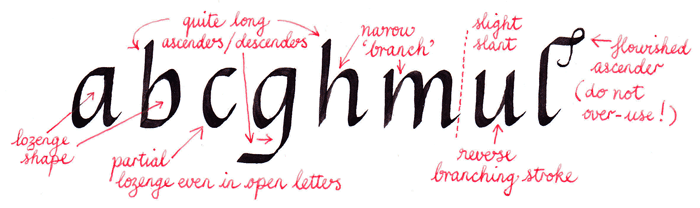 quite long
ascenders/descenders
narrow
'branch'
slight
slant
flourished
ascender
(do not
over-use!)
a b c g h m u l
lozenge
shape
partial
lozenge even in open letters
reverse
branching stroke